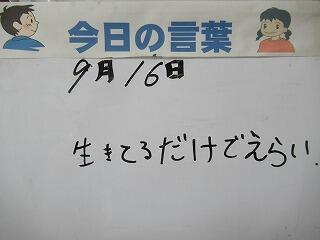 今日の言葉
9月16日
生きてるだけでえらい.